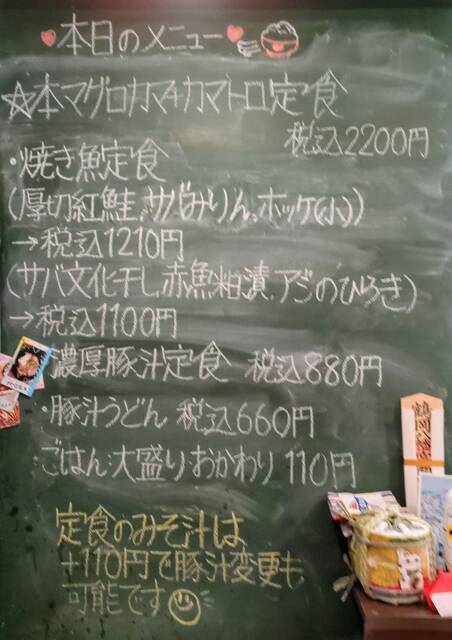 本日のメニュー
☆本マグロカマ&カマトロ定食
税込2200円
・焼き魚定食
(厚切紅鮭、サバみりん、ホッケ(小))
→税込1210円
(サバ文化干し、赤魚粕漬、アジのひらき)
→税込1100円
濃厚豚汁定食 税込880円
・豚汁うどん 税込660円
ごはん大盛り・おかわり 110円
定食のみそ汁は
+110円で豚汁変更も
可能です